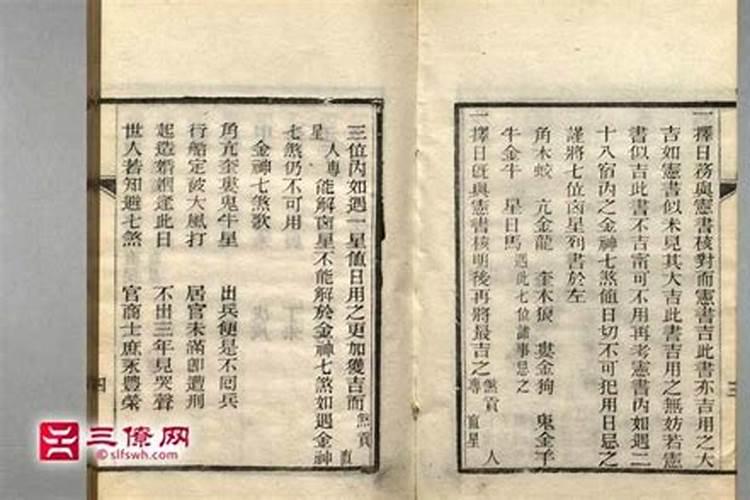 一擇日務與憲書核對而憲書吉此書亦吉用之大
吉如憲書似未見其大吉此書吉用之無妨若憲
書似吉此書不吉甯可不用再考憲書內如遇二
十八宿內之金神七煞值日切不可犯用日忌之
謹將七位凶星列書於左
角木蛟 亢金龍 奎木狼 婁金狗 鬼金羊
牛金牛 星日馬 遇此七位諸事忌之
一擇日旣與憲書核明後再將最吉之煞貢專直星人
三位內如遇一星值日用之更加獲吉而煞貢直
星人專能解凶星不能解於金神七煞如遇金神
七煞仍不可用
金神七煞歌
角亢奎婁鬼牛星 出兵便是不囘兵
行船定被大風打 居官未滿卽遭刑
起造婚姻逢此日 不出三年見哭聲
世人若知避七煞 官商士庶永豐榮
三
四
三僚网
©slfswh.com